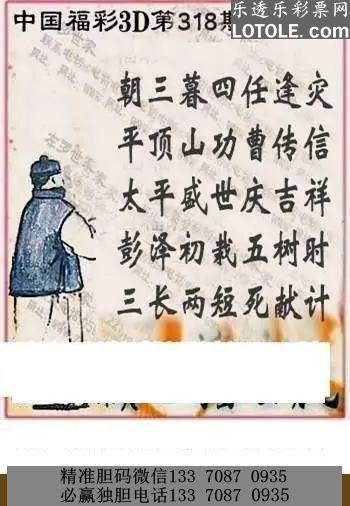 乐透乐彩票网
LOTOLE.COM
中国福彩3D第318期
朝三暮四任逢灾
平顶山功曹传信
太平盛世庆吉祥
彭泽初栽五树时
三长两短死献计
精准胆码微信133 7087 0935
必赢独胆电话133 7087 0935